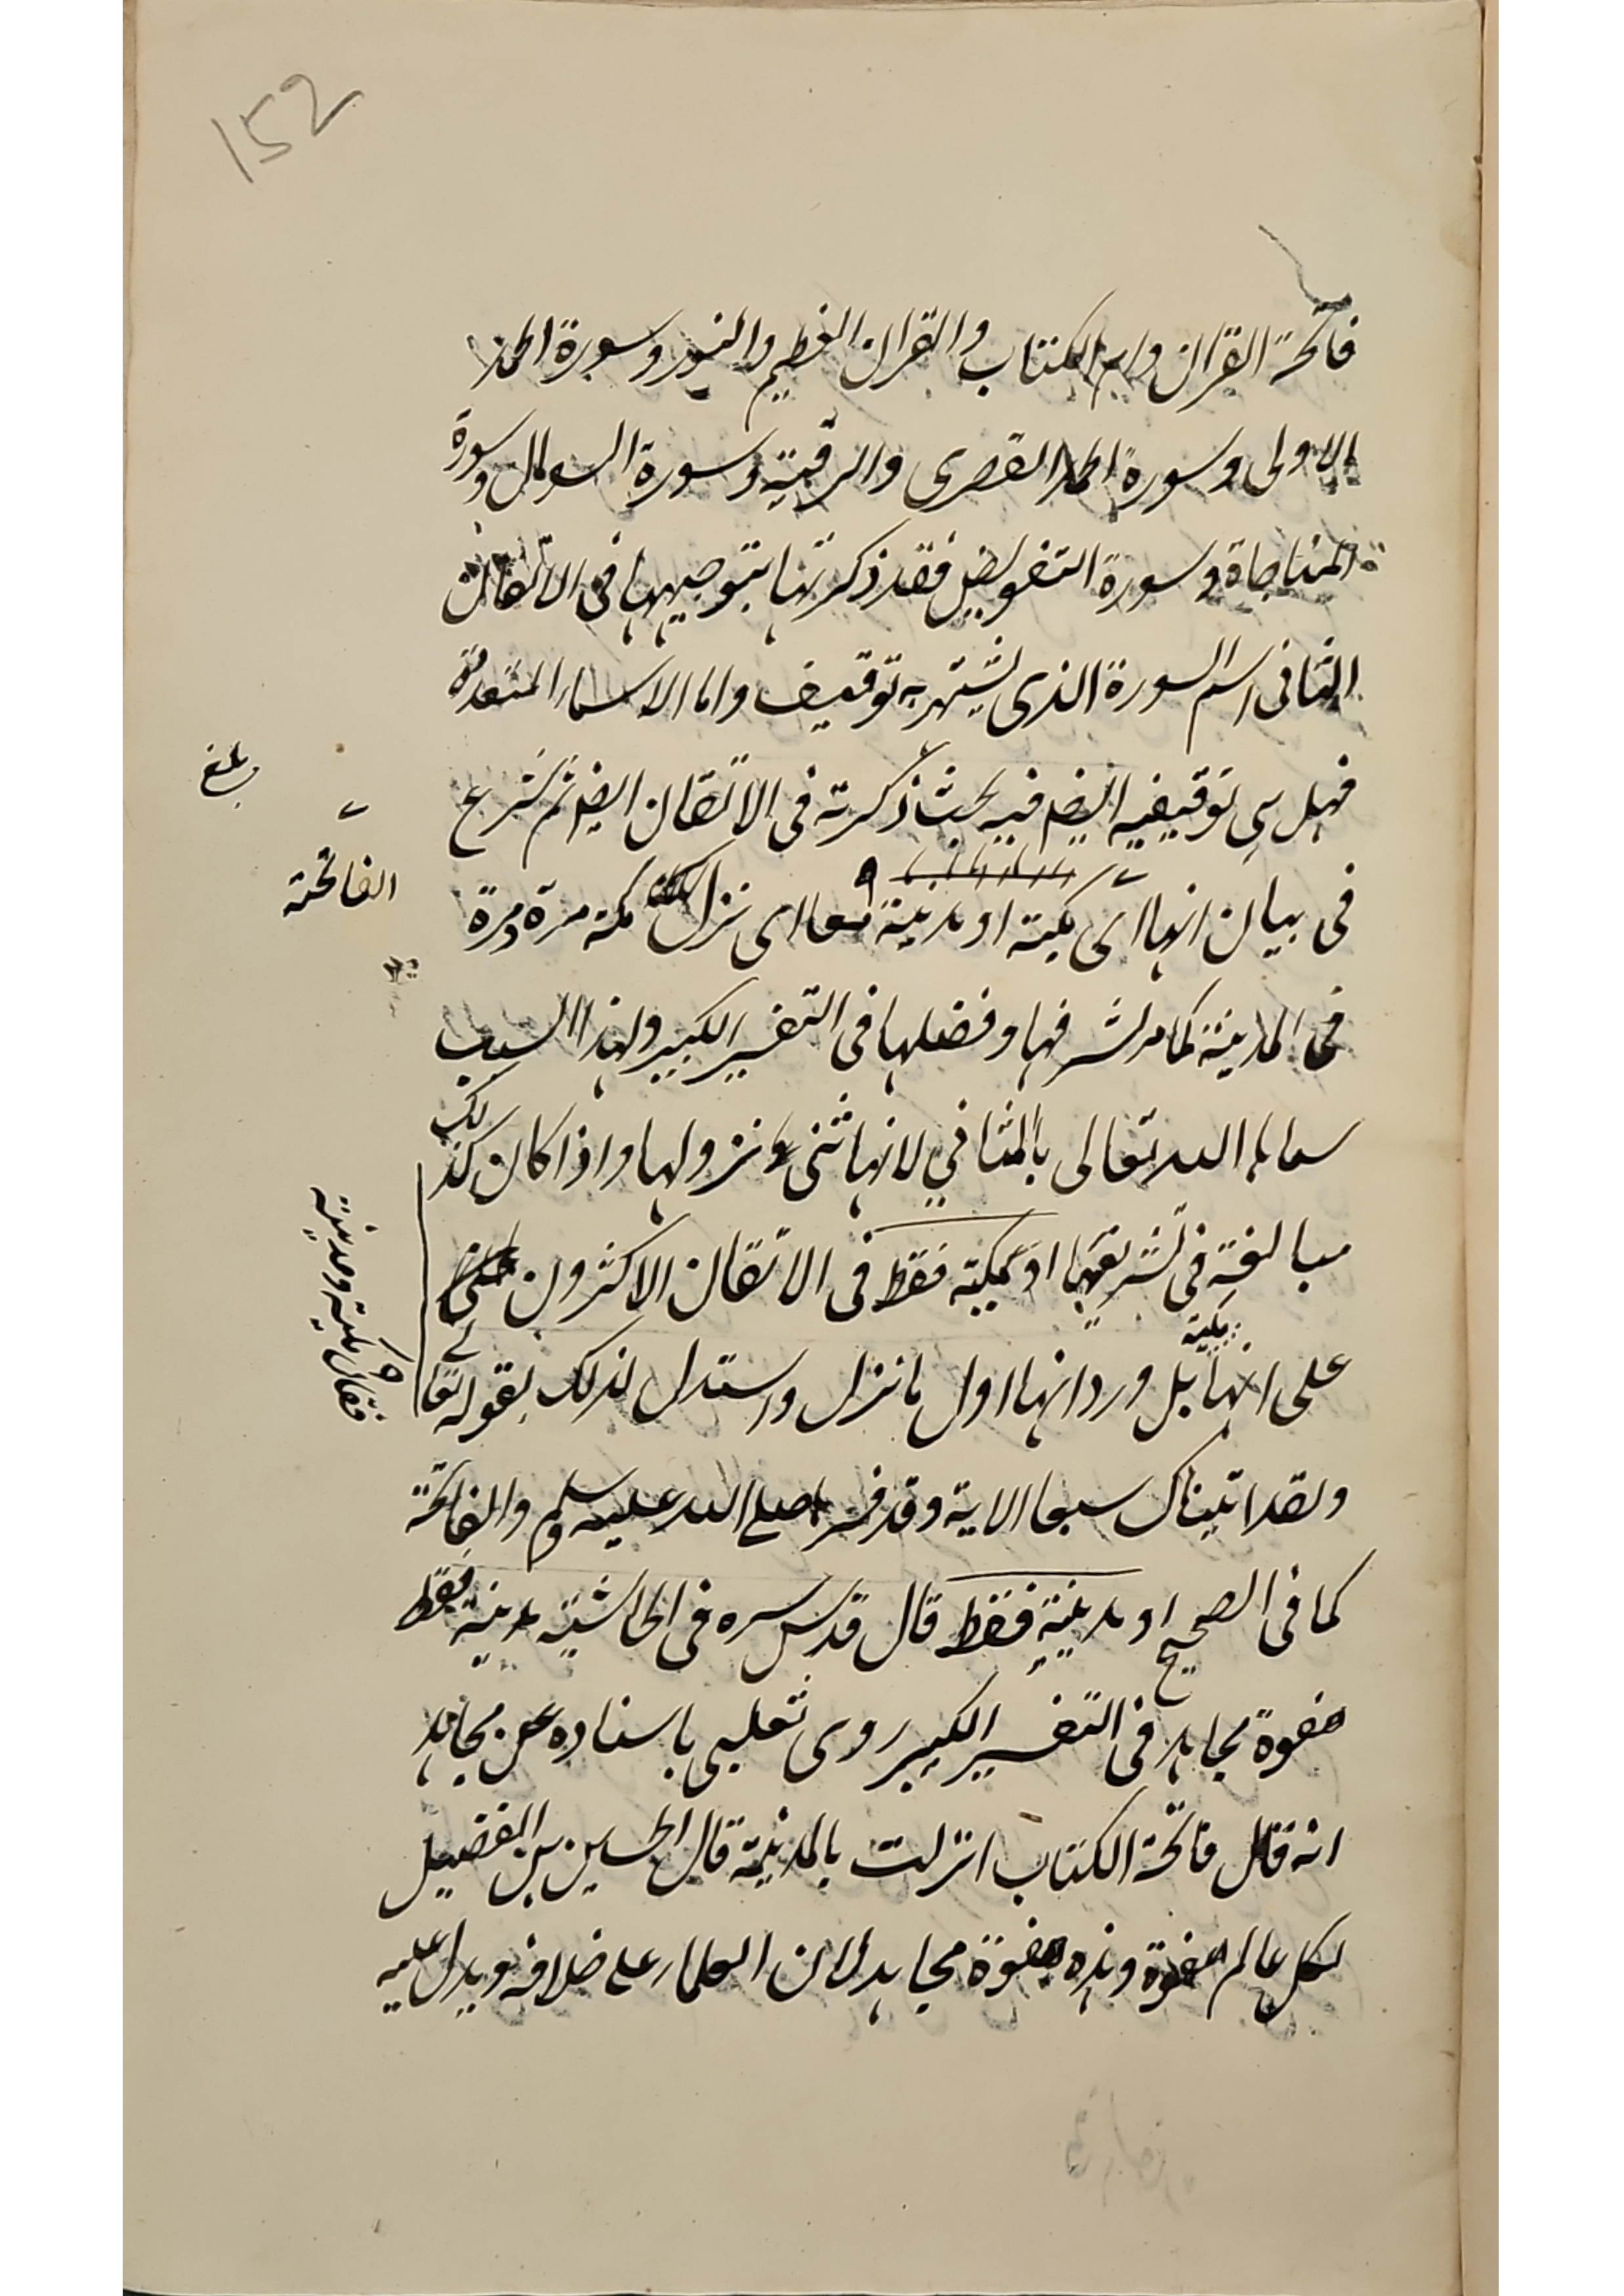 152
فاتحة القران وام الكتاب والقران العظيم والنور وسورة الحمد
الاولى وسورة الحمد القصرى والرقية وسورة السوال وسورة
المناجاة وسورة التفويض فقد ذكرتها بتوجيهها فى الاتقان
الثانى اسم السورة الذى يشتهر به توقيف واما الاسماء المتعددة
فهل هى توقيفيه ايضا فيه بحث ذكرته فى الاتقان ايضا ثم شرع
فى بيان انها اى مكية او مدينة معا اى نزل مكة مرة ومرة
الفاتحة
فى المدينة كما مر لشرفها وفضلها فى التفسير الكبير ولهذا السبب
سماها الله تعالى بالمثاني لانها ثنى نزولها واذا كان كذلك
مبالغة فى تشريفها او مكية فقط فى الاتقان الاكثرون
على انها مكية بل ورد انها اول ما نزل واستدل لذلك بقوله تعالى
فقال مكية ومدينية
ولقد اتيناك سبعا الاية وقد فسرها صلى الله عليه وسلم والفاتحة
كما فى الصحيح او مدينة فقط قال قدس سره فى الحاشية مدنية فقط
هفوة مجاهد فى التفسير الكبير روى ثعلبى باسناده عن مجاهد
انه قال فاتحة الكتاب انزلت بالمدينة قال الحسين بن الفضيل
لكل عالم هفوة وهذه هفوة مجاهد لان العلماء على خلافه ويدل عليه